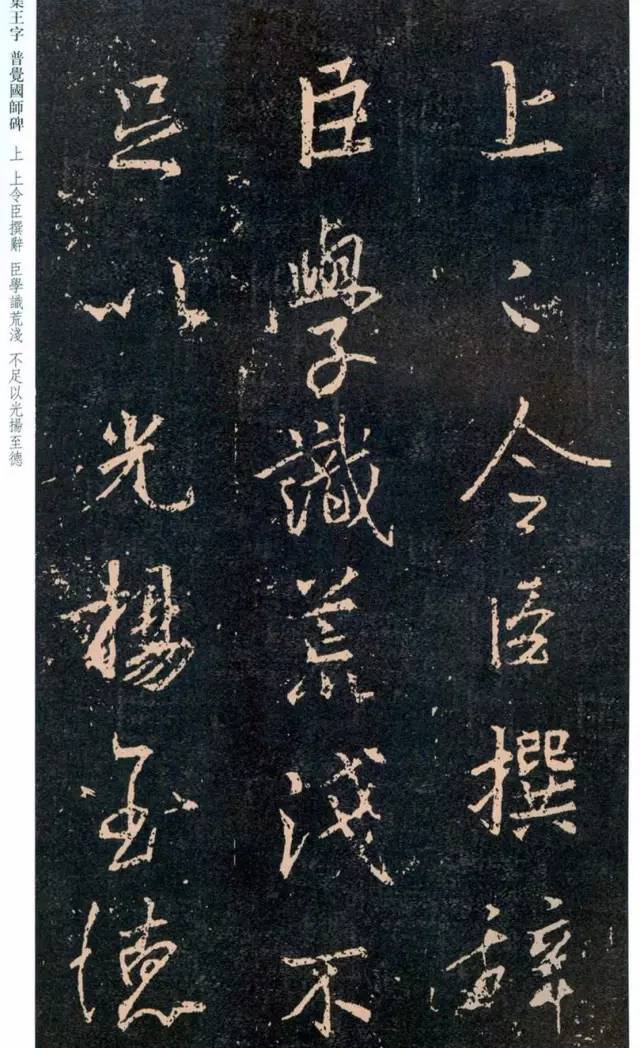 上〻令臣撰辭
臣學識荒淺不
足以光揚至德
集王字 普覺國師碑 上 上令臣撰辭 臣學識荒淺 不足以光揚至德